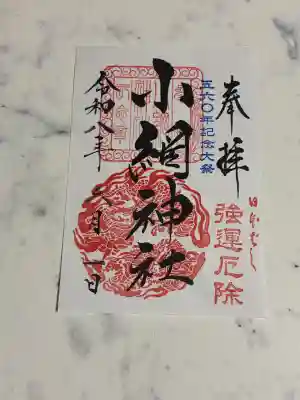 奉拝
五六〇年記念大祭
強運厄除
小網神社
令和八年 六月一日